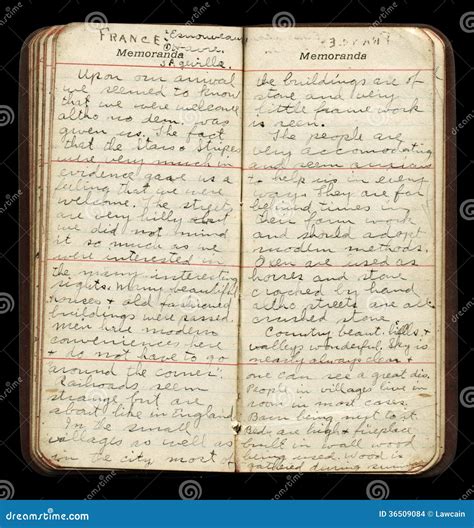 FRANCE:
Memoranda
Upon our arrival
we seemed to know
that we were welcome
altho no dem. was
given us. The fact
that the Stars & Stripes
were very much in
evidence gave us a
feeling that we were
welcome. The streets
are very hilly but
we did not mind
it so much as we
were interested in
the many interesting
sights. Many beautiful
houses & old fashioned
buildings were passed
men have modern
conveniences here
& do not have to go
around the corner."
Railroads seem
strange but are
about like in England
In the small
villages as well as
in the city most of
Memoranda
the buildings are of
stone and very
little frame work
is seen.
The people are
very accomodating
and seem anxious
to help us in every
way. They are far
behind times in
their farm work
and should adopt
modern methods.
Oxen are used as
horses and stone
cracked by hand
altho streets are all
crushed stone
Country beaut. hills &
valleys wonderful. Sky is
nearly always clear &
one can see a great dis.
People in villages live in
room in most cases.
Barn being next to it.
Beds are high & fireplace
built in wall wood
being used. Wood is
gathered during summer
dreamstime.com
ID 36509084 © Lawcain